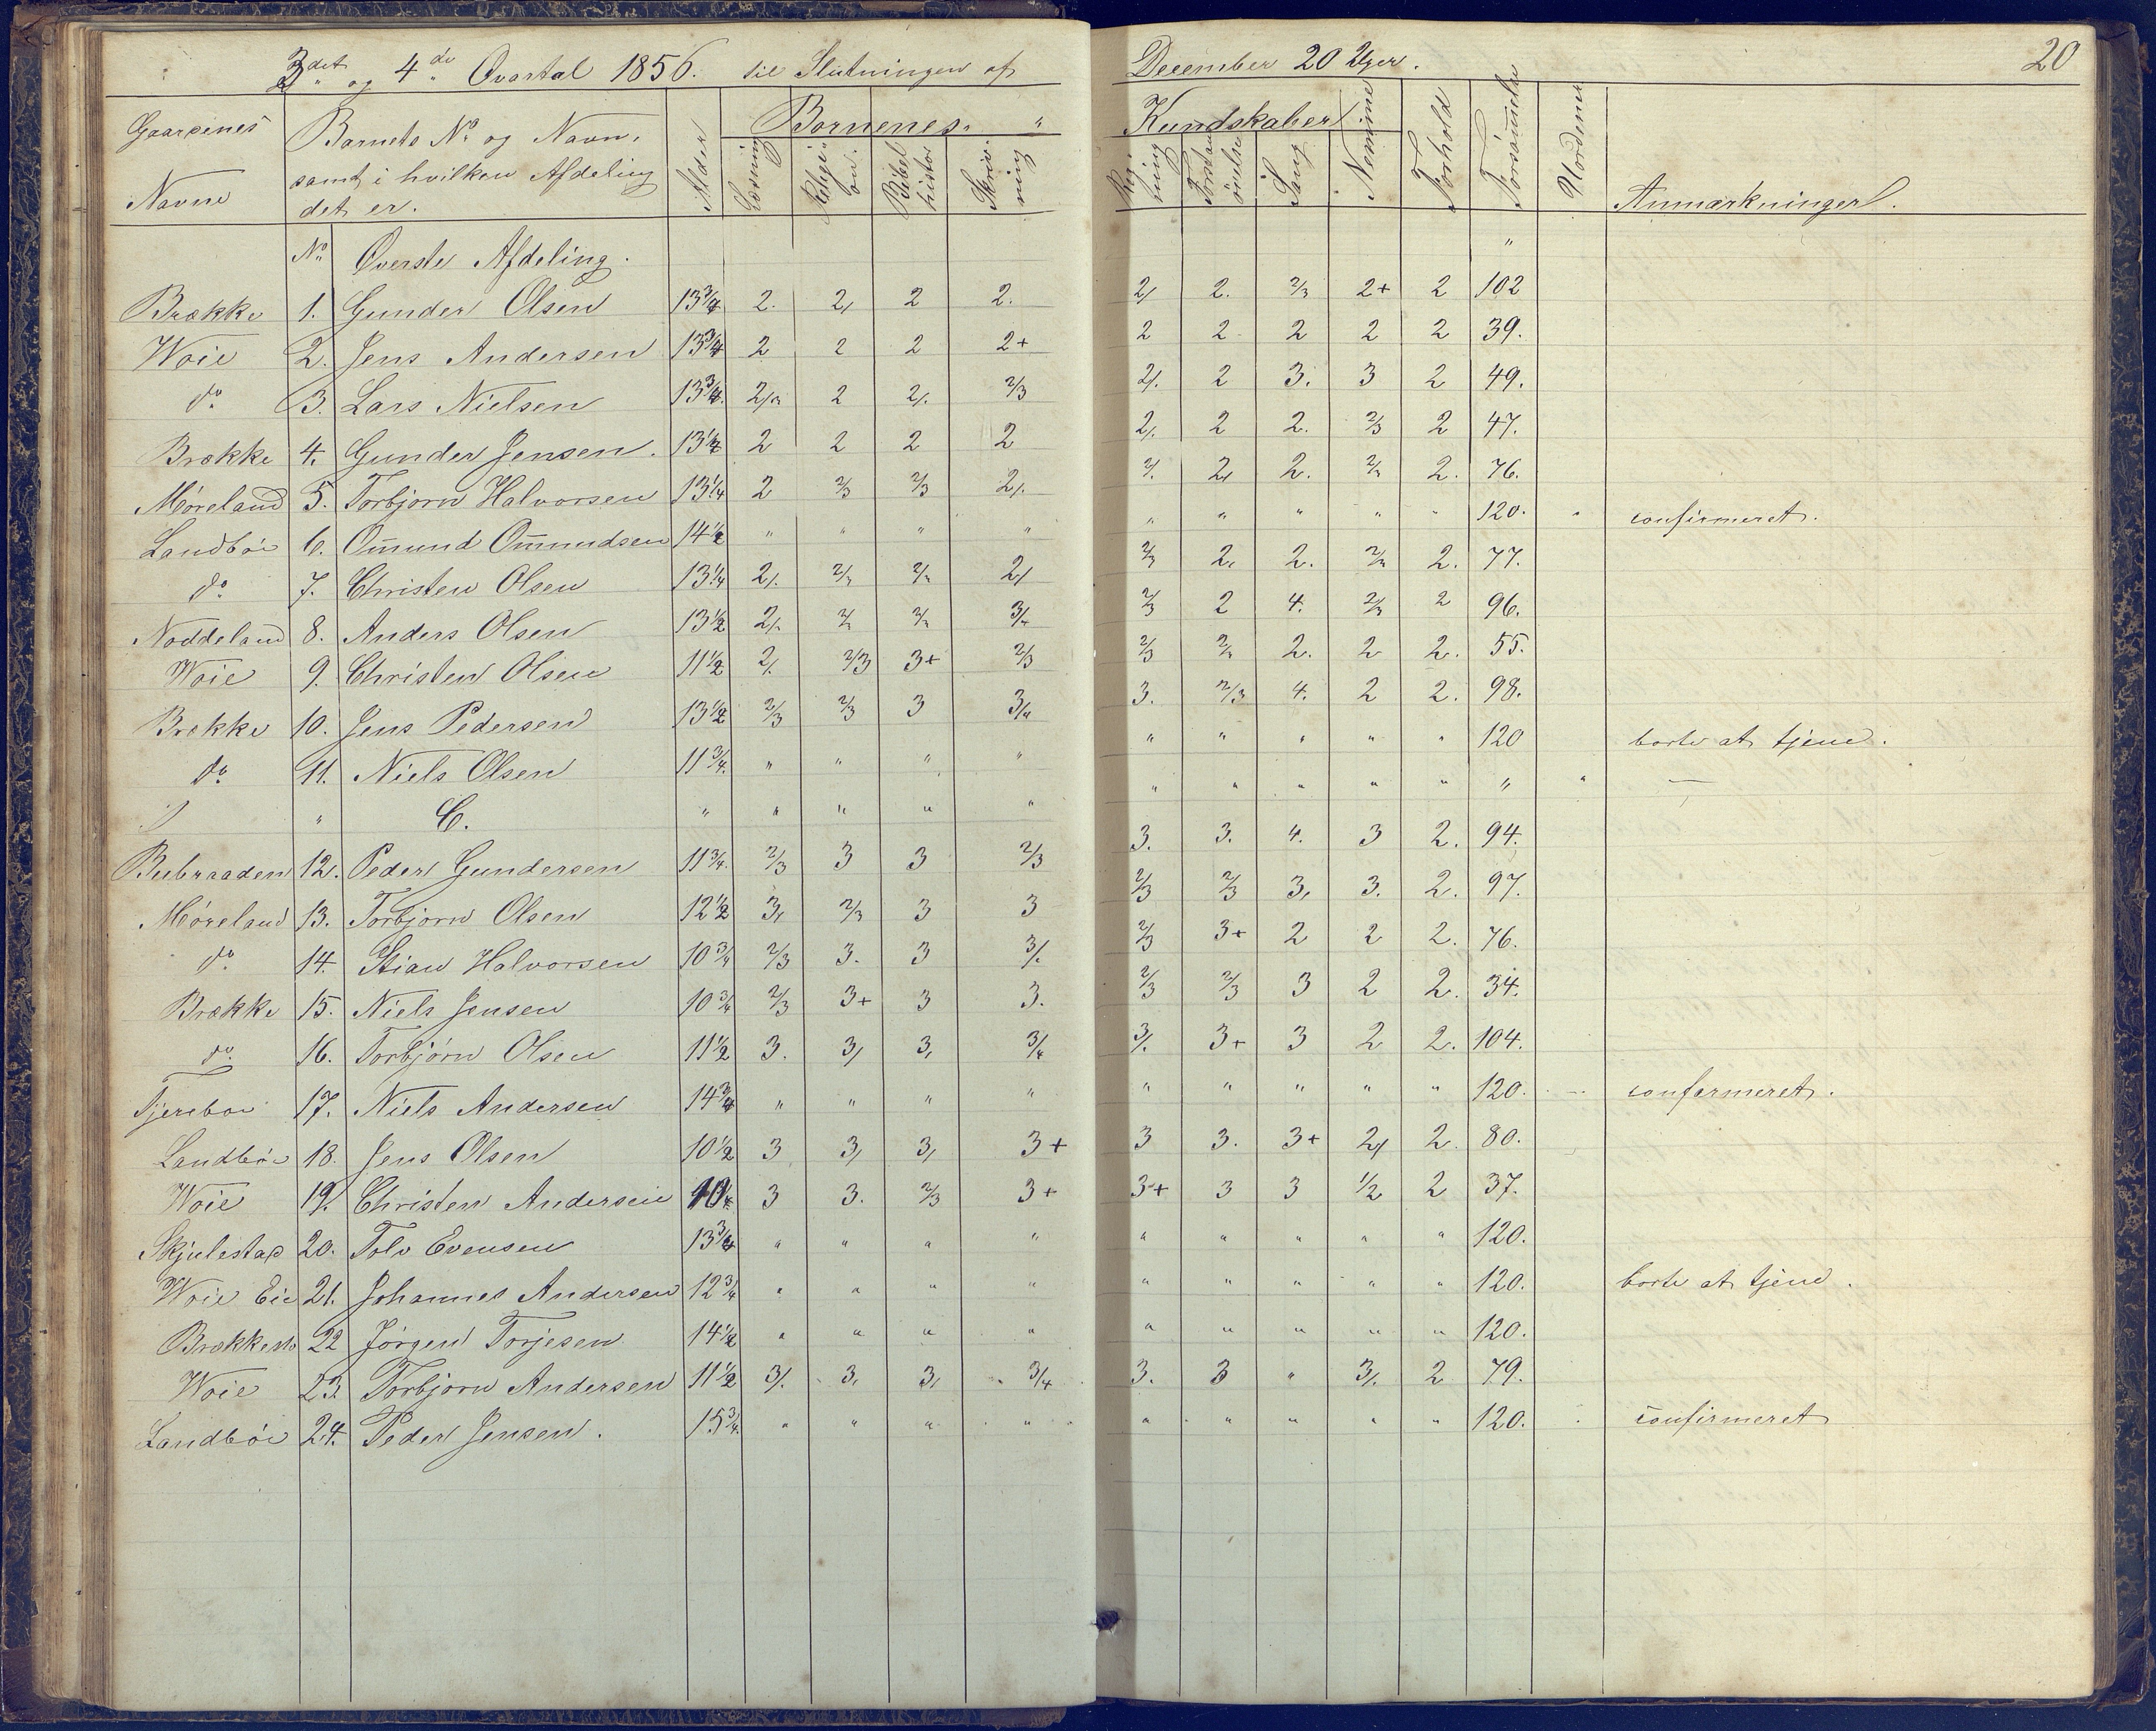 3det og 4de Qvartal 1856. til Slutningen af December 20 Uger. 20
Gaardenes Navne Barnets No og Navn, samt i hvilken Afdeling det er. Alder Børnenes Kundskaber Forhold Forsømmelse Anmærkninger.
Læsning Religion. Bibelhistor Skrivning Regning Sang Nemme
No Øverste Afdeling. "
Brække 1. Gunder Olsen 13 3/4 2. 2/ 2 2. 2/ 2. 2/3 2+ 2 102
Woie 2. Jens Andersen 13 3/4 2 2 2 2+ 2 2 2 2 2 39.
do 3. Lars Nielsen 13 3/4 2/" 2 2/. 2/3 2/. 2 3. 3 2 49.
Brække 4. Gunder Jensen. 13 1/2 2 2 2 2 2/. 2 2. 2/3 2 47.
Møreland 5. Torbjørn Halvorsen 13 1/4 2 2/3 2/3 2/. 2/. 2/ 2. 2/3 2. 76.
Landbøe 6. Om̄und Om̄undsen 14 1/2 " " " " " " " " " 120. " confirmeret.
do 7. Christen Olsen 13 1/4 2/. 2/3 2/3 2/ 2/3 2, 2. 2/3 2. 77.
Noddeland 8. Anders Olsen 13 1/2 2/. 2/3 2/3 3/4 2/3 2 4. 2/3 2 96.
Woie 9. Christen Olsen 11 1/2 2/. 2/3 3+ 2/3 2/3 2/3 2. 2 2. 55.
Brække 10. Jens Pedersen 13 1/2 2/3 2/3 3 3/4 3. 2/3 4. 2 2. 98.
do 11. Niels Olsen 11 3/4. " " " " " " " " " 120 borte at tjene.
" " C. " " " " " " " " " " " "
Beibraaden 12. Peder Gundersen 11 3/4. 2/3 3 3 2/3 3. 3. 4. 3 2. 94.
Møreland 13. Torbjørn Olsen 12 1/2 3, 2/3 3 3 2/3 2/3 3, 3. 2. 97.
do 14. Stian Halvorsen 10 3/4 2/3 3. 3 3/. 2/3 3+ 2 2 2. 76.
Brække 15. Niels Jensen 10 3/4 2/3 3+ 3 3. 2/3 2/3 3 2 2. 34.
do 16. Torbjørn Olsen 11 1/2 3. 3/ 3, 3/4 3/. 3+ 3 2 2. 104.
17. Niels Andersen 14 3/4 " " " " " " " " " 120. confermeret.
Landbøe 18. Jens Olsen 10 1/2 3 3/ 3, 3+ 3 3. 3+ 2/ 2. 80.
Woie 19. Christen Andersen 3 3. 2/3 3+ 3+ 3 3 1/2 2 37.
Skjulestad 20. Tolv Evensen 13 3/4 " " " " " " " " " 120.
Woie Eie 21. Johannes Andersen 12 3/4 " " " " " " " " " 120. borte at tjene.
22 Jørgen Torjesen 14 1/2 " " " " " " " " " 120.
Woie 23. Torbjørn Andersen 11 1/2 3/. 3, 3, 3/4 3. 3 " 3/. 2 79.
Landbøe 24. Peder Jensen. 15 3/4. " " " " " " " " " 120. confirmeret